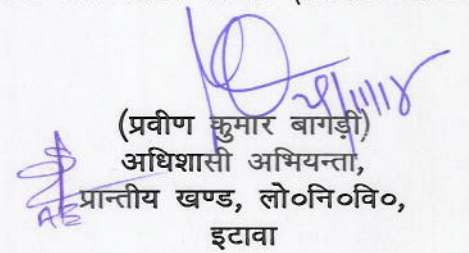 (प्रवीण कुमार बागड़ी)
अधिशासी अभियन्ता,
प्रान्तीय खण्ड, लो०नि०वि०,
AE
इटावा